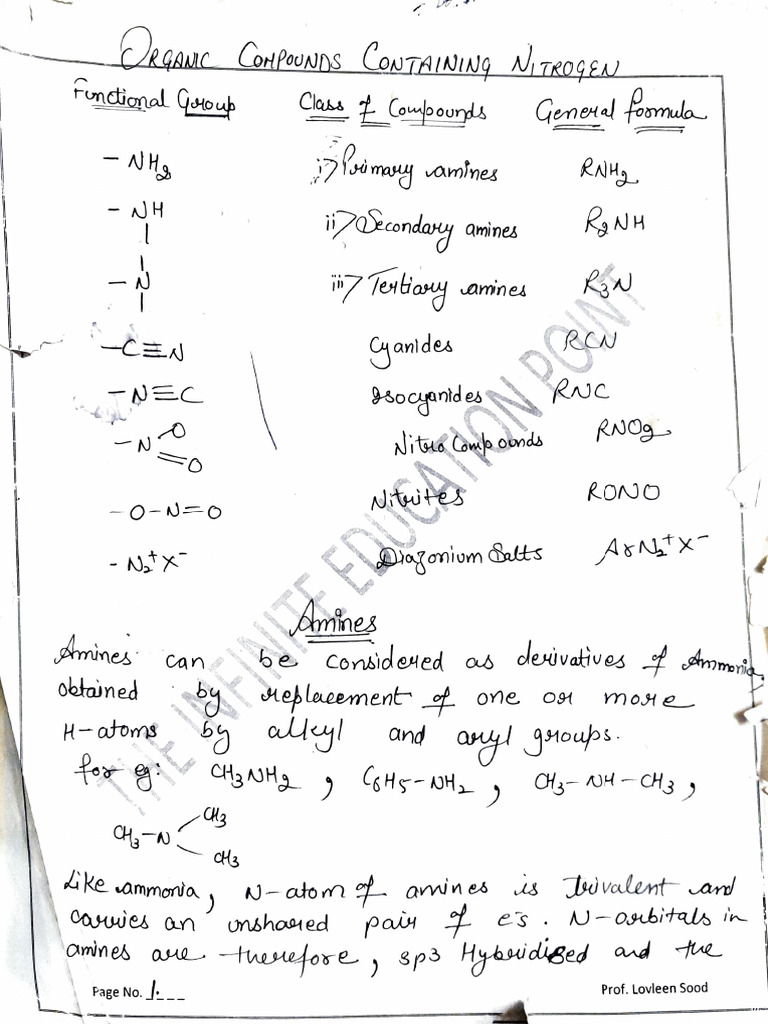 ORGANIC COMPOUNDS CONTAINING NITROGEN
Functional Group Class of Compounds General formula
-NH₂ i) Primary amines RNH₂
-NH ii) Secondary amines R₂NH
-N iii) Tertiary amines R₃N
-C≡N Cyanides RCN
-N≡C Isocyanides RNC
-N-O=O Nitro Compounds RNO₂
-O-N=O Nitrites RONO
-N₂⁺X⁻ Diazonium Salts ArN₂⁺X⁻
THE INFINITE EDUCATION POINT
Amines
Amines can be considered as derivatives of Ammonia,
obtained by replacement of one or more
H-atoms by alkyl and aryl groups.
for eg: CH₃NH₂, C₆H₅-NH₂, CH₃-NH-CH₃,
CH₃
CH₃-N
CH₃
Like ammonia, N-atom of amines is trivalent and
carries an unshared pair of e⁻s. N-orbitals in
amines are therefore, sp3 Hybridised and the
Page No. 1. Prof. Lovleen Sood